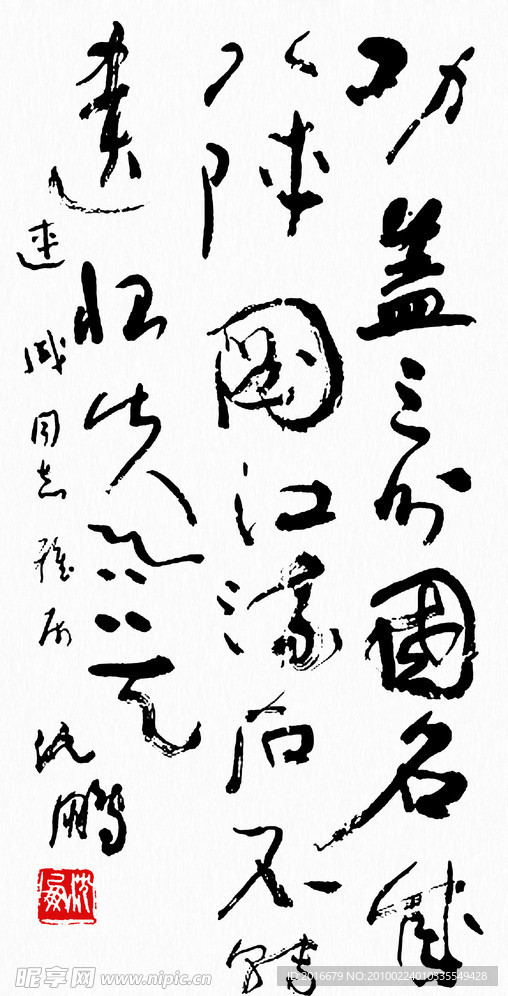 功盖三分國名成
八陣圖江流石不轉
遺恨失吞吴
建成同志雅属 沈鹏
昵享网 www.nipic.cn
ID:2016679 NO:20100224010335549428